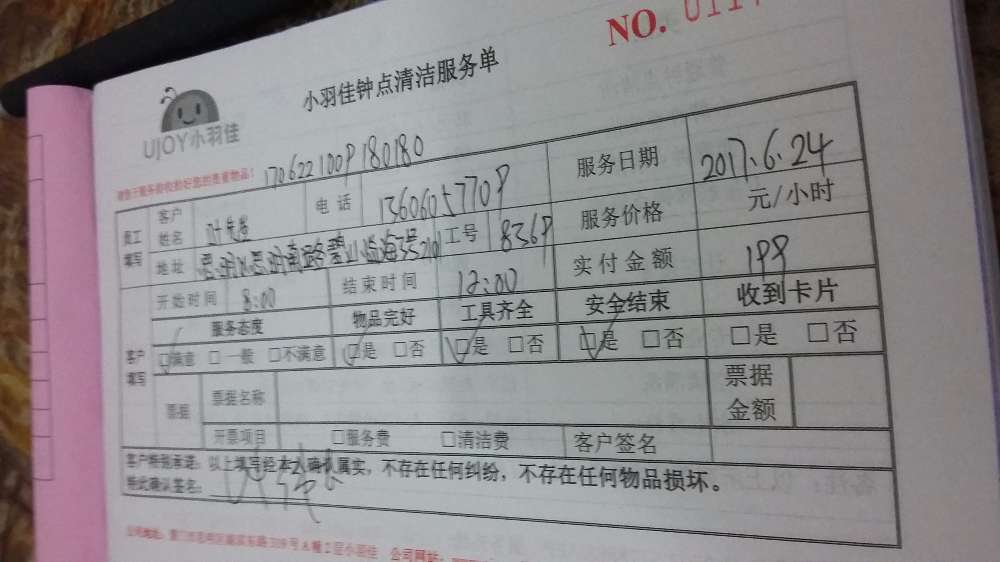 NO. 0117
小羽佳钟点清洁服务单
UJOY小羽佳
170622100P180180
员工填写 客户姓名 叶先生 电话 1360605770P 服务日期 2017.6.24
地址 工号 836P 服务价格 元/小时
开始时间 8:00 结束时间 12:00 实付金额 199
客户填写 服务态度 物品完好 工具齐全 安全结束 收到卡片
☑满意 □一般 □不满意 ☑是 □否 ☑是 □否 ☑是 □否 □是 □否
票据 票据名称 票据金额
开票项目 □服务费 □清洁费 客户签名
客户特别承诺：以上填写经本人确认属实，不存在任何纠纷，不存在任何物品损坏。
特此确认签名：